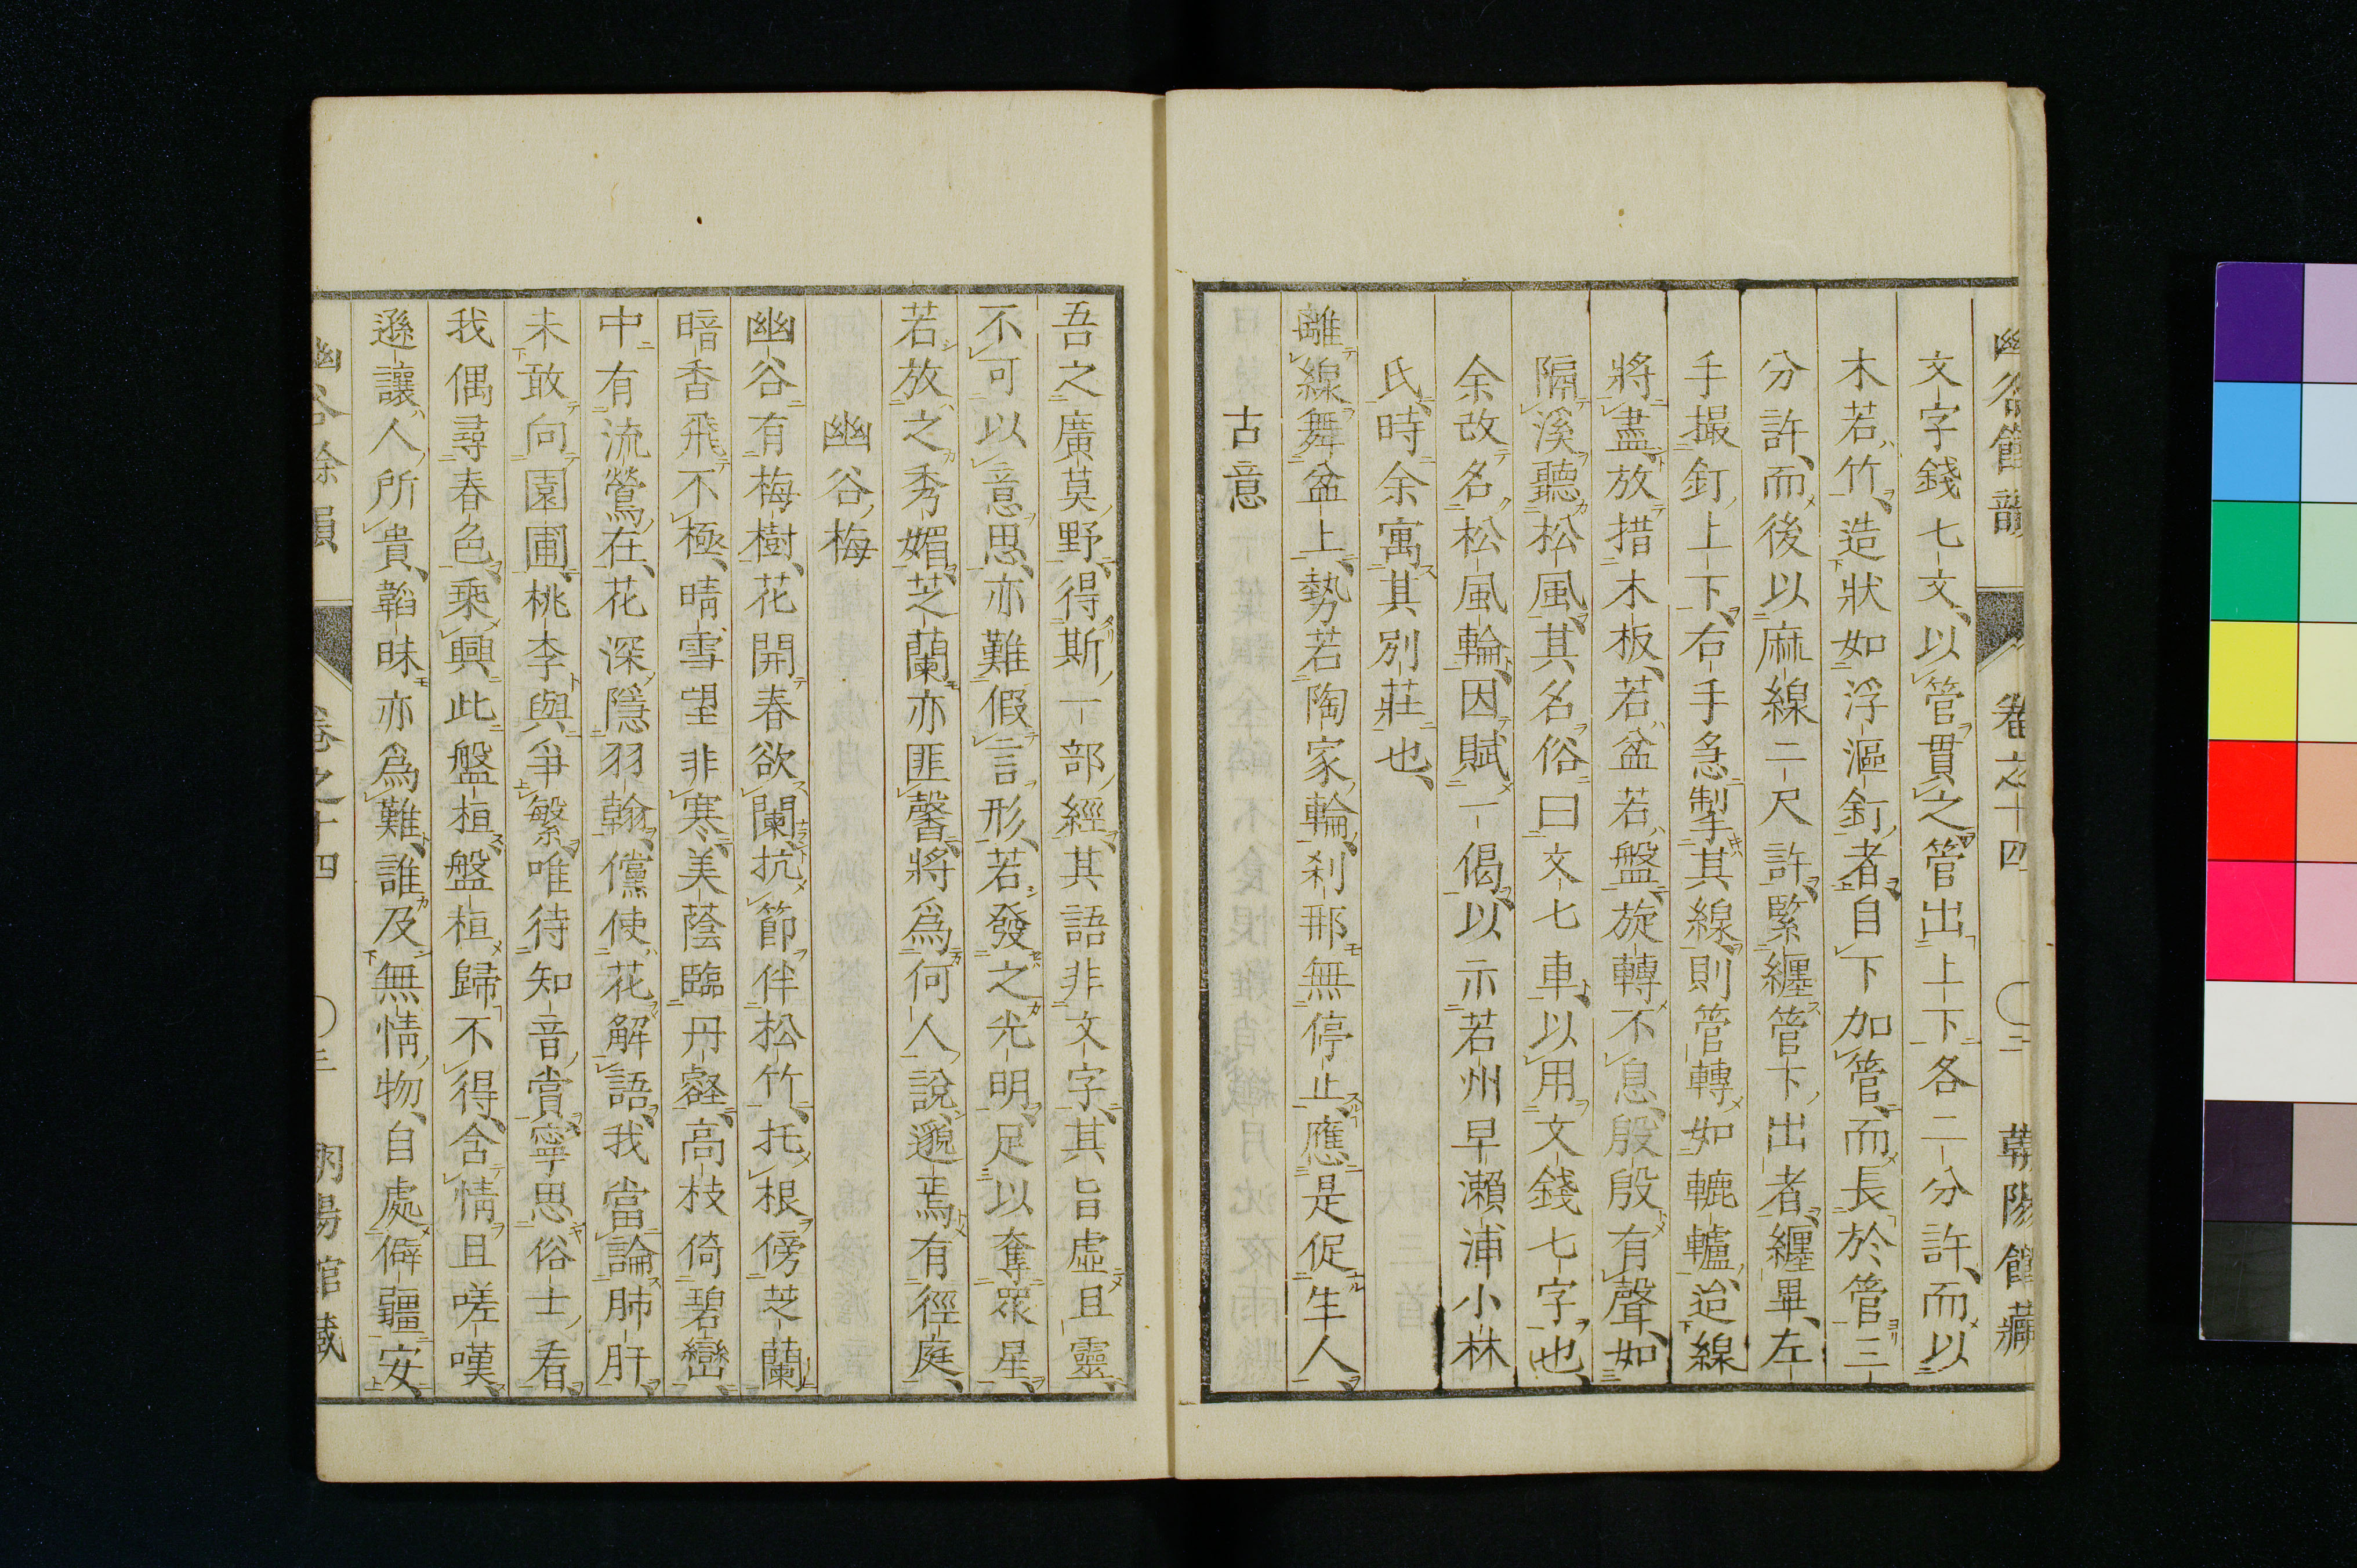 幽谷餘韻 卷之十四 〇二 朝陽館藏
文字錢七文、以管貫之管出上下各二分許、而以
木若竹、造狀如浮漚釘者自下加管、而長於管三
分許、而後以麻線二尺許、緊纏管下出者、纏畢、左
手撮釘上下、右手急掣其線、則管轉如轆轤、迨線
將盡、放措木板、若盆若盤、旋轉不息、殷殷有聲、如
隔溪聽松風、其名俗曰文七車、以用文錢七字也、
余改名松風輪、因賦一偈、以示若州早瀨浦小林
氏、時余寓其別莊也、
離線舞盆上、勢若陶家輪、刹那無停止、應是促生人、
古意
吾之廣莫野、得斯一部經、其語非文字、其旨虛且靈、
不可以意思、亦難假言形、若發之光明、足以奪眾星、
若放之秀媚、芝蘭亦匪馨、將爲何人說、邈焉有徑庭、
幽谷梅
幽谷有梅樹、花開春欲闌、抗節伴松竹、托根傍芝蘭、
暗香飛不極、晴雪望非寒、美蔭臨丹壑、高枝倚碧巒、
中有流鶯在、花深隱羽翰、儻使花解語、我當論肺肝、
未敢向園圃、桃李與爭繁、唯待知音賞、寧思俗士看、
我偶尋春色、乘興此盤桓、盤桓歸不得、含情且嗟嘆、
遜讓人所貴、韜昧亦爲難、誰及無情物、自處僻疆安、
幽谷餘韻 卷之十四 〇三 朝陽館藏